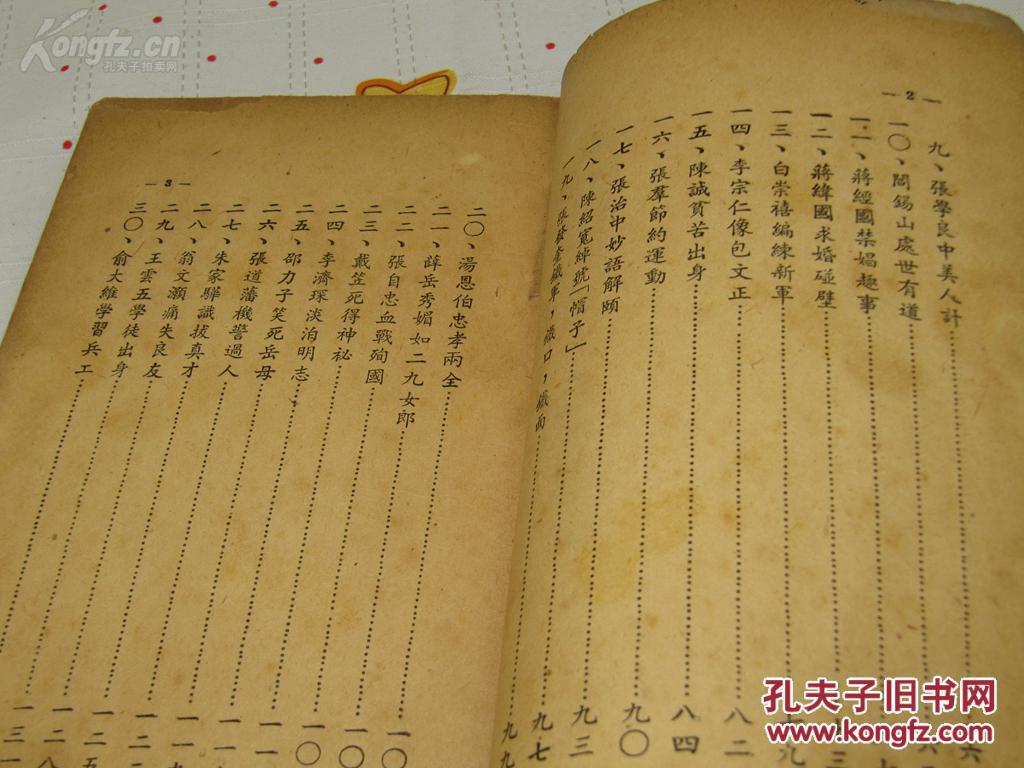 Kongfz.cn
孔夫子拍卖网
— 2 —
九、張學良中美人計
一〇、閻錫山處世有道
一一、蔣經國禁娼趣事
一二、蔣緯國求婚碰壁
一三、白崇禧編練新軍
一四、李宗仁像包文正 八二
一五、陳誠貧苦出身 八四
一六、張羣節約運動 九〇
一七、張治中妙語解頤 九三
一八、陳紹寬綽號「帽子」 九七
一九、張發奎鐵軍，鐵口，鐵面 九九
— 3 —
二〇、湯恩伯忠孝兩全
二一、薛岳秀媚如二九女郎
二二、張自忠血戰殉國
二三、戴笠死得神祕
二四、李濟琛淡泊明志
二五、邵力子笑死岳母
二六、張道藩機警過人
二七、朱家驊識拔真才
二八、翁文灝痛失良友
二九、王雲五學徒出身
三〇、俞大維學習兵工
孔夫子旧书网
www.kongfz.com